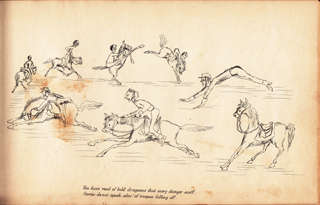 You have read of bold dragoons that every danger scoff
Stories do not speak, alas! of troopers falling off